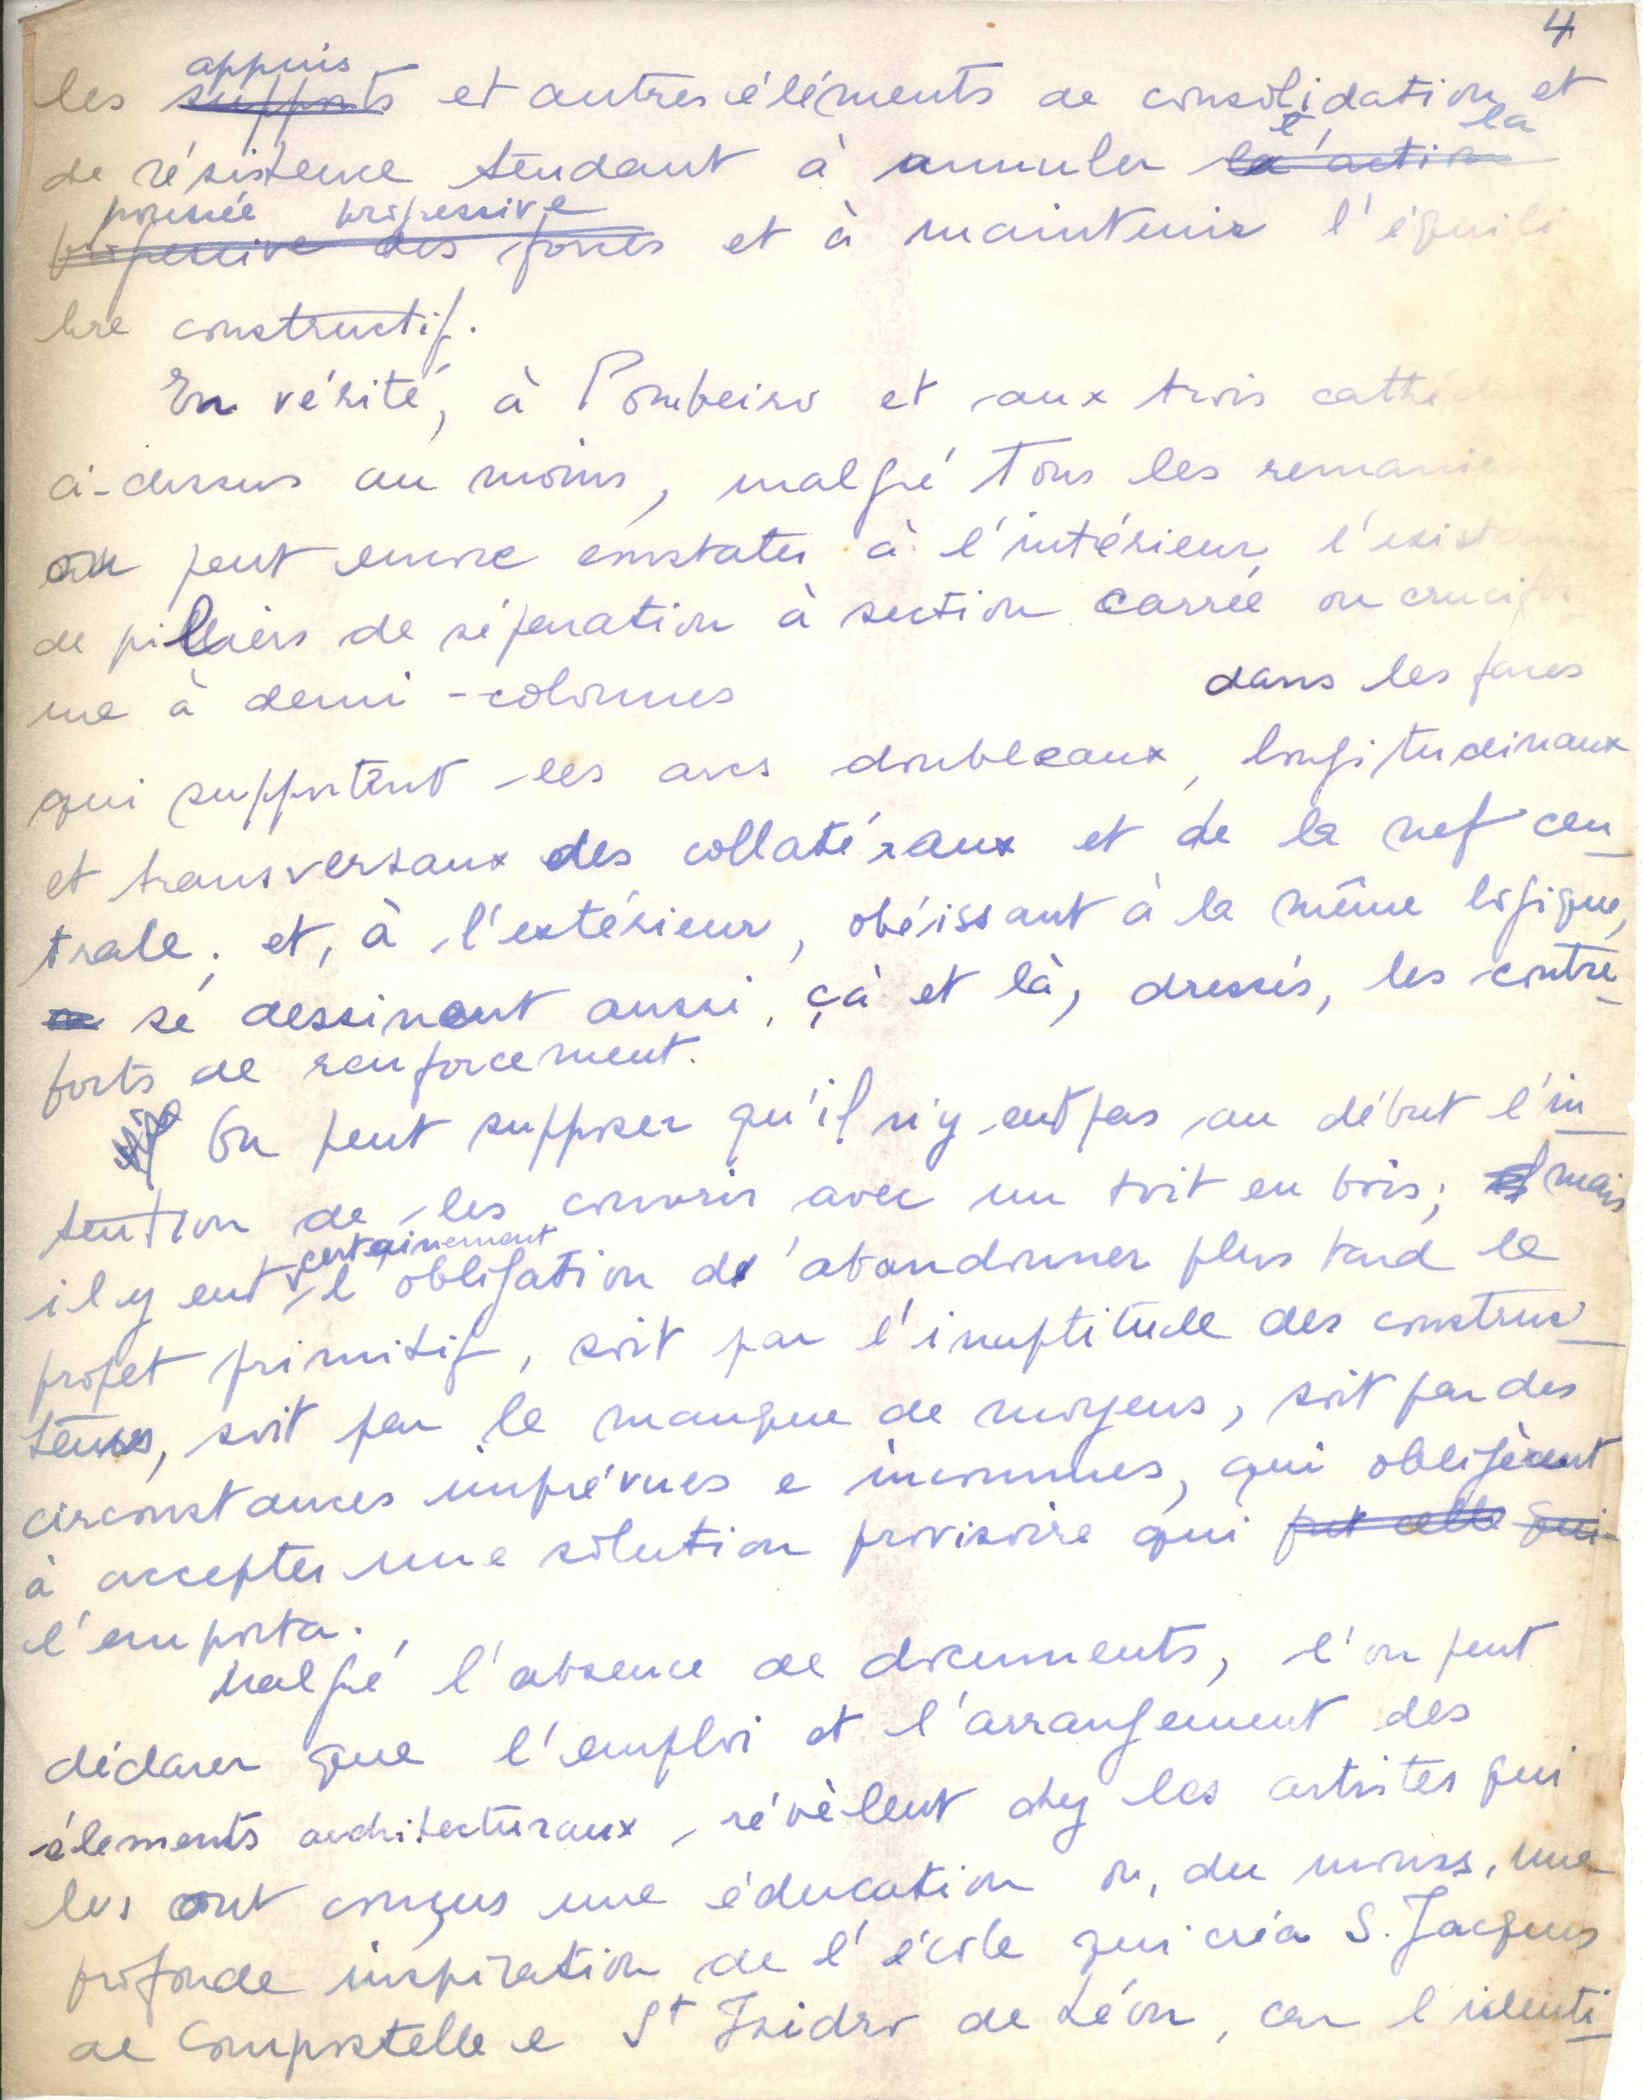 4
appuis
les supports et autres éléments de consolidation et
l' la
de résistence tendant à annuler la action
poussée progressive
progressive des forces et à maintenir l'équili
bre constructif.
En vérité, à Pombeiro et aux trois cathéd
ci-dessus au moins, malgré tous les remanie
on peut encore constater à l'intérieur l'exist
de pilliers de séparation à section carrée ou crucifor
me à demi-colonnes dans les faces
qui supportent les arcs doubleaux, longitudinaux
et transversaux des collatéraux et de la nef cen
trale; et, à l'extérieur, obéissant à la même logique,
se dessinent aussi, çà et là, dressés, les contre
forts de renforcement.
On peut supposer qu'il n'y eut pas au début l'in
tention de les couvrir avec un toit en bois; mais
certainement
il y eut l'obligation d'abandonner plus tard le
projet primitif, soit par l'inaptitude des construc
teurs, soit par le manque de moyens, soit par des
circonstances imprévues e inconnues, qui obligèrent
à accepter une solution provisoire qui fut celle qui
l'emporta.
Malgré l'absence de documents, l'on peut
déclarer que l'emploi et l'arrangement des
élements architecturaux, révèlent chez les artistes qui
les ont conçus une éducation ou, du moins, une
profonde inspiration de l'école qui créa S. Jacques
de Compostelle e St Isidro de Léon, car l'identi